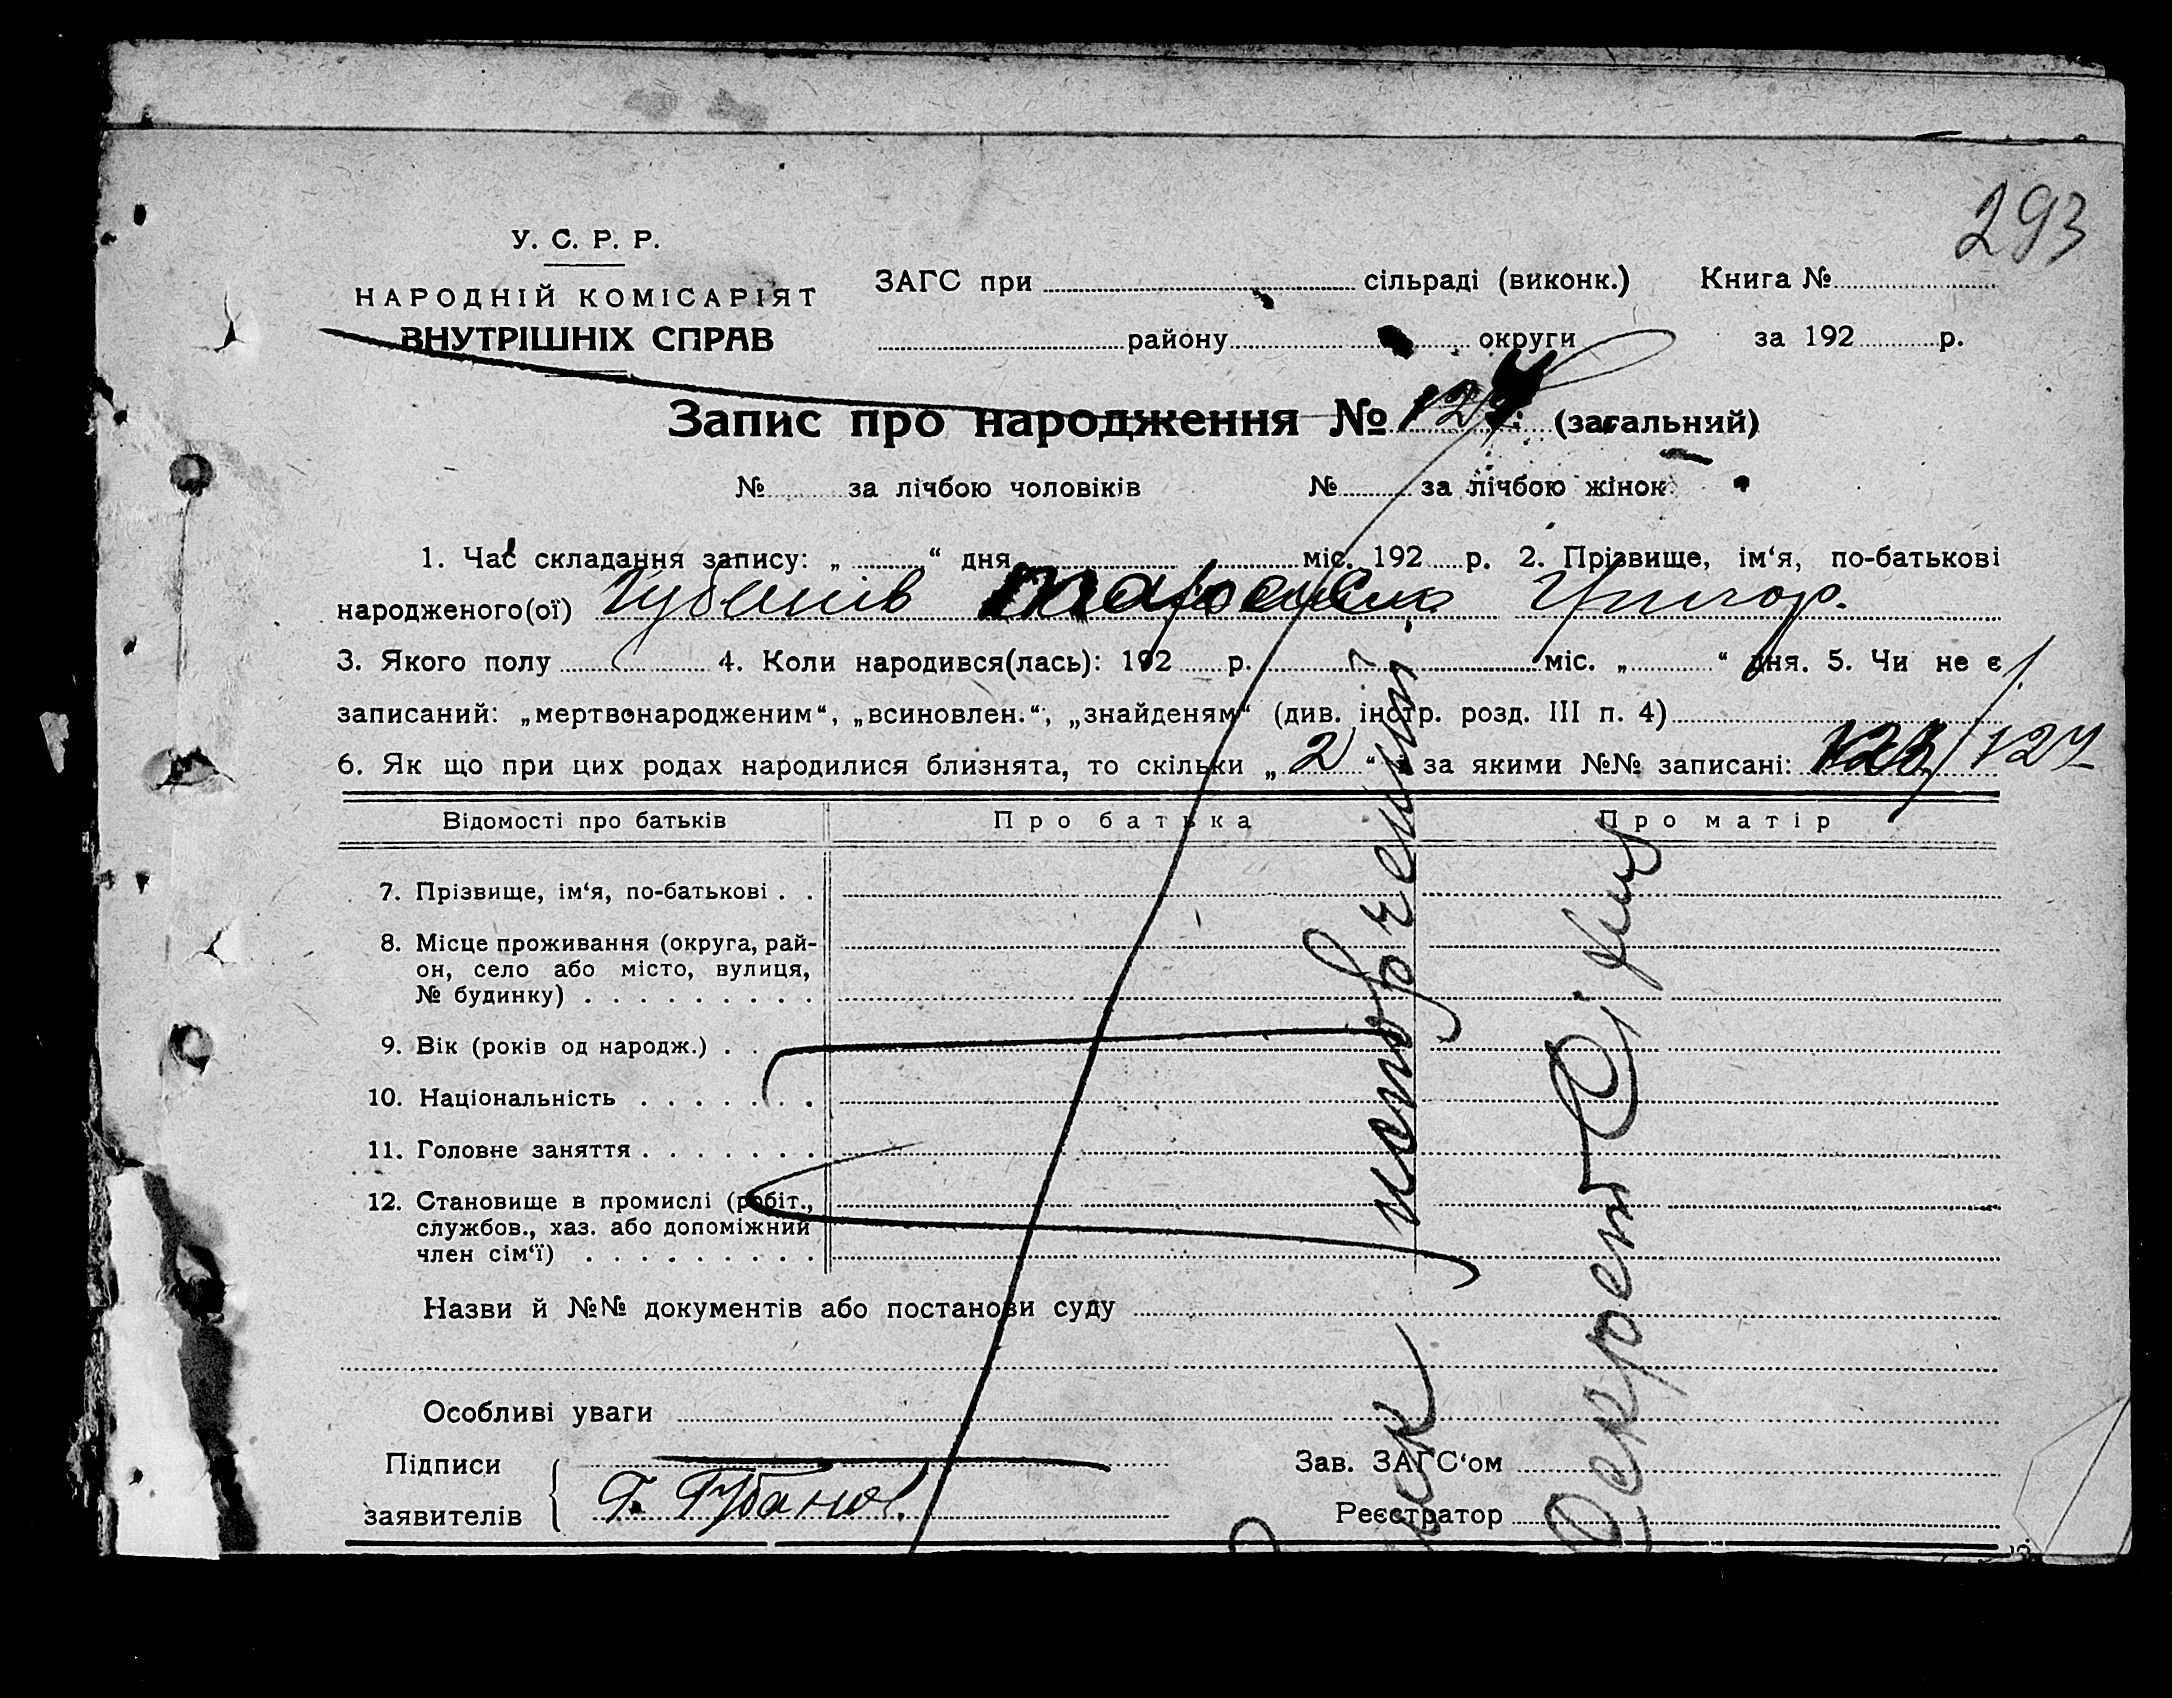 293
У. С. Р. Р.
НАРОДНІЙ КОМІСАРІЯТ
ВНУТРІШНІХ СПРАВ
ЗАГС при сільраді (виконк.) Книга №
району округи за 192 р.
Запис про народження № 124 (загальний)
№ за лічбою чоловіків № за лічбою жінок
1. Час складання запису: „ “ дня міс. 192 р. 2. Прізвище, ім‘я, по-батькові
народженого(ої) Григор.
3. Якого полу 4. Коли народився(лась): 192 р. міс. „ “ дня. 5. Чи не є
записаний: „мертвонародженим“, „всиновлен.“, „знайденям“ (див. інстр. розд. III п. 4)
6. Як що при цих родах народилися близнята, то скільки „ 2 “ й за якими №№ записані: 123/124
Відомості про батьків Про батька Про матір
7. Прізвище, ім‘я, по-батькові . .
8. Місце проживання (округа, рай-
он, село або місто, вулиця,
№ будинку) . . . . . . . . .
9. Вік (років од народж.) . .
10. Національність . . . . . . .
11. Головне заняття . . . . . . .
12. Становище в промислі (робіт.,
службов., хаз. або допоміжний
член сім‘ї) . . . . . . . . .
Назви й №№ документів або постанови суду
Особливі уваги
Підписи Зав. ЗАГС‘ом
заявителів Г. Губанов. Реєстратор